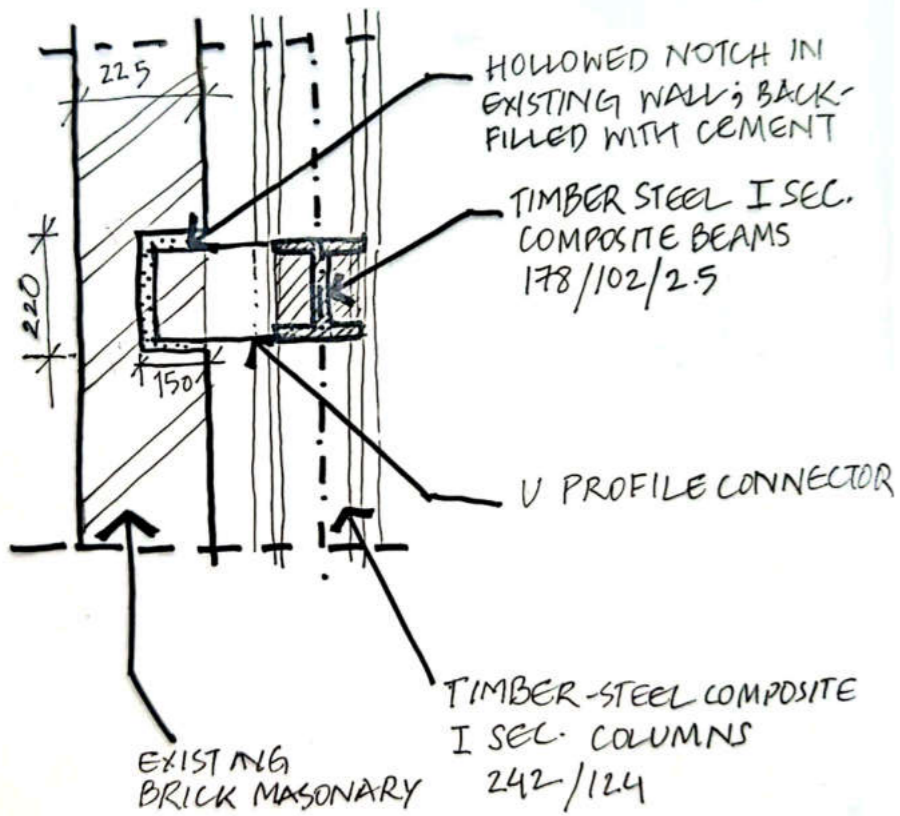 225
HOLLOWED NOTCH IN
EXISTING WALL; BACK-
FILLED WITH CEMENT
TIMBER STEEL I SEC.
COMPOSITE BEAMS
178/102/2.5
220
150
U PROFILE CONNECTOR
TIMBER-STEEL COMPOSITE
I SEC. COLUMNS
242/124
EXISTING
BRICK MASONARY